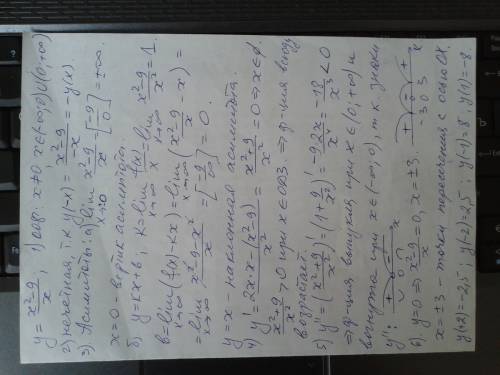 y = (x²-9)/x ; 1) ООФ: x≠0, x∈(-∞;0)∪(0;+∞)
2) нечетная, т.к. y(-x) = (x²-9)/(-x) = -y(x).
3) Асимптоты: а) lim x→0 (x²-9)/x = [-9/0] = +∞.
x=0 - вертик. асимптота.
б) y=kx+b, k = lim x→∞ f(x)/x = lim x→∞ (x²-9)/x² = 1.
b = lim x→∞ (f(x)-kx) = lim x→∞ ((x²-9)/x - x) =
= lim x→∞ (x²-9-x²)/x = [-9/∞] = 0.
y=x - наклонная асимптота.
4) y' = (2x·x-(x²-9))/x² = (x²+9)/x² = 0 ⇒ x∈∅.
(x²+9)/x² > 0 при x∈ООЗ. ⇒ ф-ция всюду
возрастает.
5) y'' = ((x²+9)/x²)' = (1+9/x²)' = -9·2x/x⁴ = -18/x³ < 0
⇒ ф-ция выпукла при x∈(0;+∞) и
вогнута при x∈(-∞;0), т.к. знаки
y'':
6) y=0 ⇒ (x²-9)/x = 0, x=±3.
x=±3 - точки пересечения с осью OX.
y(2)=-2,5; y(-2)=2,5; y(-1)=8, y(1)=-8.